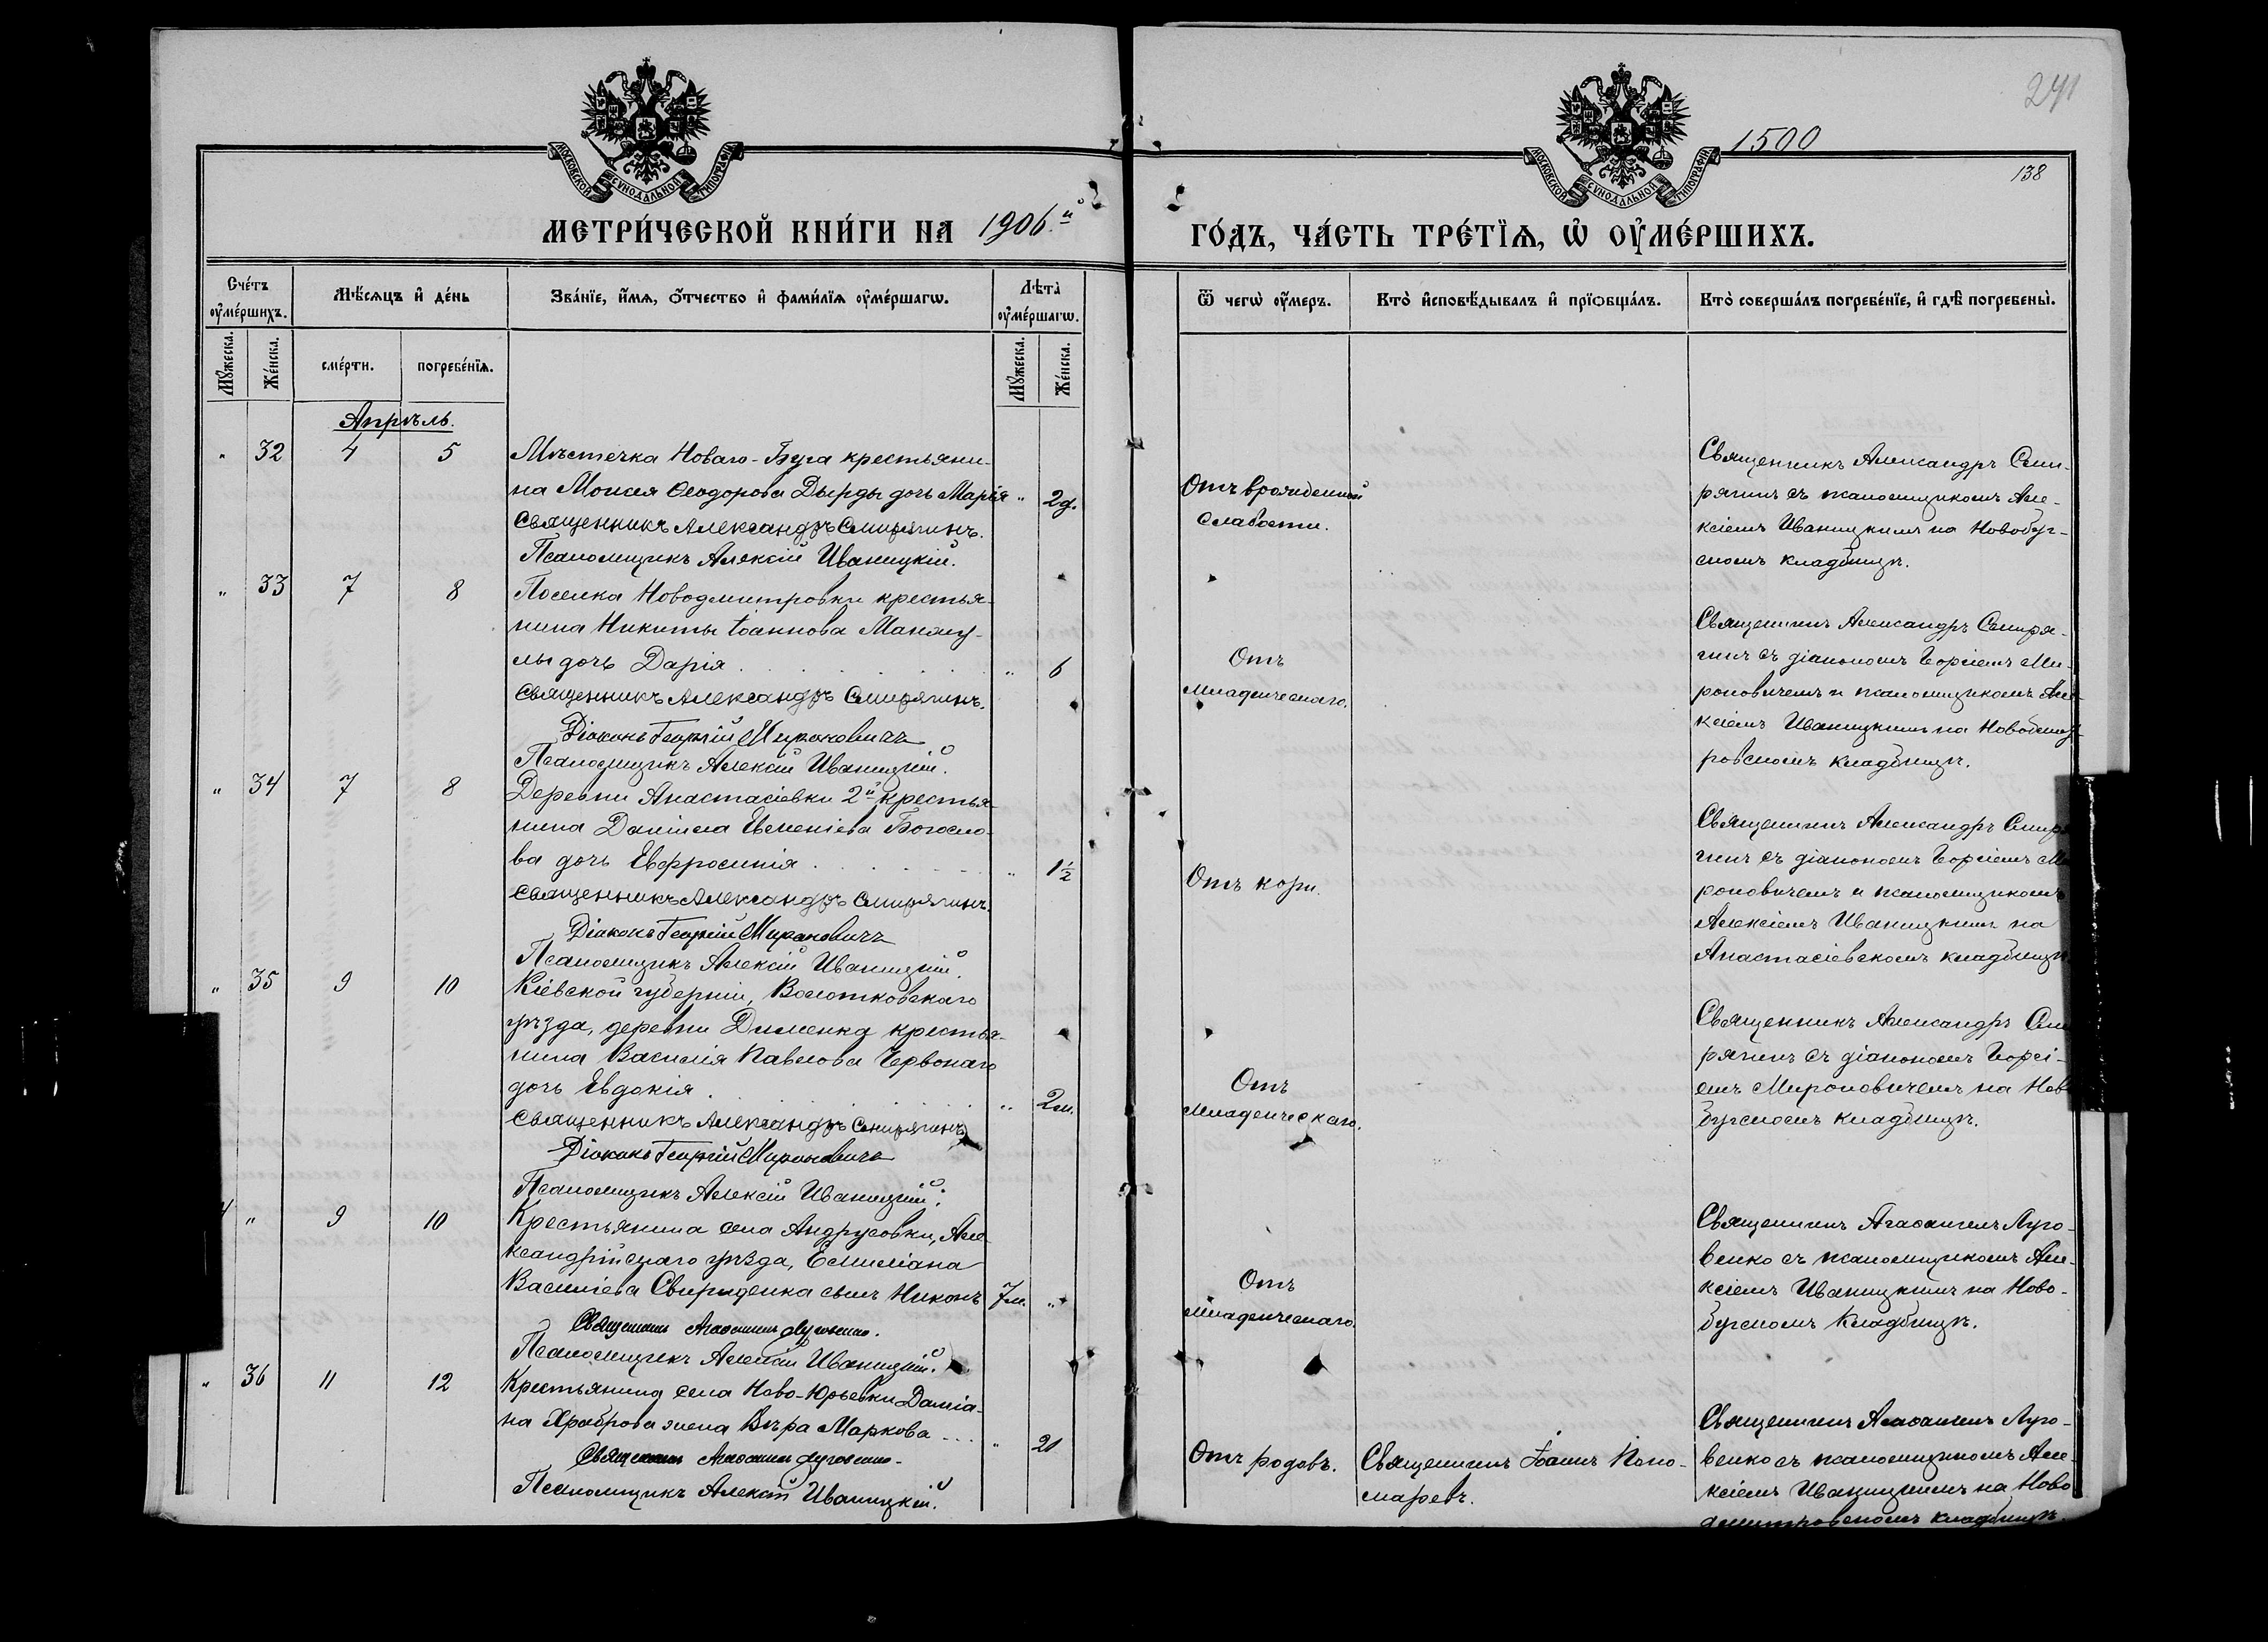 241
1500
138
МОСКОВСКОЙ СУНОДАЛЬНОЙ ТИПОГРАФІИ
МОСКОВСКОЙ СУНОДАЛЬНОЙ ТИПОГРАФІИ
МЕТРИ́ЧЕСКОЙ КНИ́ГИ НА 1906.й
ГО́ДЪ, ЧА́СТЬ ТРЕ́ТЇѦ, Ѡ ОУ҆МЕ́РШИХЪ.
Сче́тъ оу҆ме́ршихъ.
Мѣ́сѧцъ и҆ де́нь
Зва́нїе, и҆́мѧ, ѻ҆́тчество и҆ фами́лїѧ оу҆ме́ршагѡ.
Лѣ́та оу҆ме́ршагѡ.
Ѿ чегѡ̀ оу҆́меръ.
Кто̀ и҆сповѣ́дывалъ и҆ прїѻбща́лъ.
Кто̀ соверша́лъ погребе́нїе, и҆ гдѣ̀ погребены̀.
Мꙋ́жеска.
Же́нска.
сме́рти.
погребе́нїѧ.
Мꙋ́жеска.
Же́нска.
Апрѣль.
" 32 4 5
Мѣстечка Новаго-Буга крестьяни-
на Моисея Ѳеодорова Дырды дочь Марія " 2д.
Священникъ Александръ Смирягинъ.
Псаломщикъ Алексій Иваницкій.
Отъ врожденной
слабости.
Священникъ Александръ Сми-
рягинъ съ псаломщикомъ Але-
ксіемъ Иваницкимъ на Новобуг-
скомъ кладбищѣ.
" 33 7 8
Поселка Новодмитровки крестья-
нина Никиты Іоаннова
дочь Дарія " 6
Священникъ Александръ Смирягинъ.
Діаконъ Георгій Мироновичъ
Псаломщикъ Алексій Иваницкій.
Отъ
младенческаго.
Священникъ Александръ Смиря-
гинъ съ діакономъ Георгіемъ Ми-
роновичемъ и псаломщикомъ Але-
ксіемъ Иваницкимъ на Новодмит-
ровскомъ кладбищѣ.
" 34 7 8
Деревни Анастасіевки 2й крестья-
нина Даніила Евменіева Богосло-
ва дочь Евфросинія " 1½
Священникъ Александръ Смирягинъ.
Діаконъ Георгій Мироновичъ
Псаломщикъ Алексій Иваницкій.
Отъ кори.
Священникъ Александръ Смиря
гинъ съ діакономъ Георгіемъ Ми
роновичемъ и псаломщикомъ
Алексіемъ Иваницкимъ на
Анастасіевскомъ кладбищѣ
" 35 9 10
Кіевской губерніи,
уѣзда, деревни крестья-
нина Василія Павлова Червонаго
дочь Евдокія " 2м.
Священникъ Александръ Смирягинъ
Діаконъ Георгій Мироновичъ
Псаломщикъ Алексій Иваницкій.
Отъ
младенческаго.
Священникъ Александръ Сми
рягинъ съ діакономъ Георгі-
емъ Мироновичемъ на Ново
бугскомъ кладбищѣ.
" 9 10
Крестьянина села Андрусовки, Але-
ксандрійскаго уѣзда, Емиліана
Василіева Свириденка сынъ Никонъ 7м. "
Священникъ Агаѳангелъ Луговенко.
Псаломщикъ Алексій Иваницкій.
Отъ
младенческаго.
Священникъ Агаѳангелъ Луго-
венко съ псаломщикомъ Але-
ксіемъ Иваницкимъ на Ново-
бугскомъ кладбищѣ.
" 36 11 12
Крестьянина села Ново-Юрьевки Даміа-
на Храброва жена Вѣра Маркова " 21
Священникъ Агаѳангелъ Луговенко.
Псаломщикъ Алексій Иваницкій.
Отъ родовъ.
Священникъ Іоаннъ Поно-
маревъ.
Священникъ Агаѳангелъ Луго-
венко съ псаломщикомъ Але-
ксіемъ Иваницкимъ на Ново
дмитровскомъ кладбищѣ.